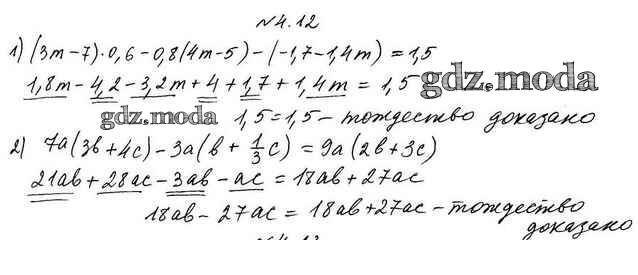 №4.12
1) (3m-7)·0,6-0,8(4m-5)-(-1,7-1,4m)=1,5
1,8m-4,2-3,2m+4+1,7+1,4m=1,5 gdz.moda
gdz.moda 1,5=1,5-тождество доказано
2) 7a(3b+4c)-3a(b+1/3c)=9a(2b+3c)
21ab+28ac-3ab-ac=18ab+27ac
18ab-27ac=18ab+27ac-тождество
доказано